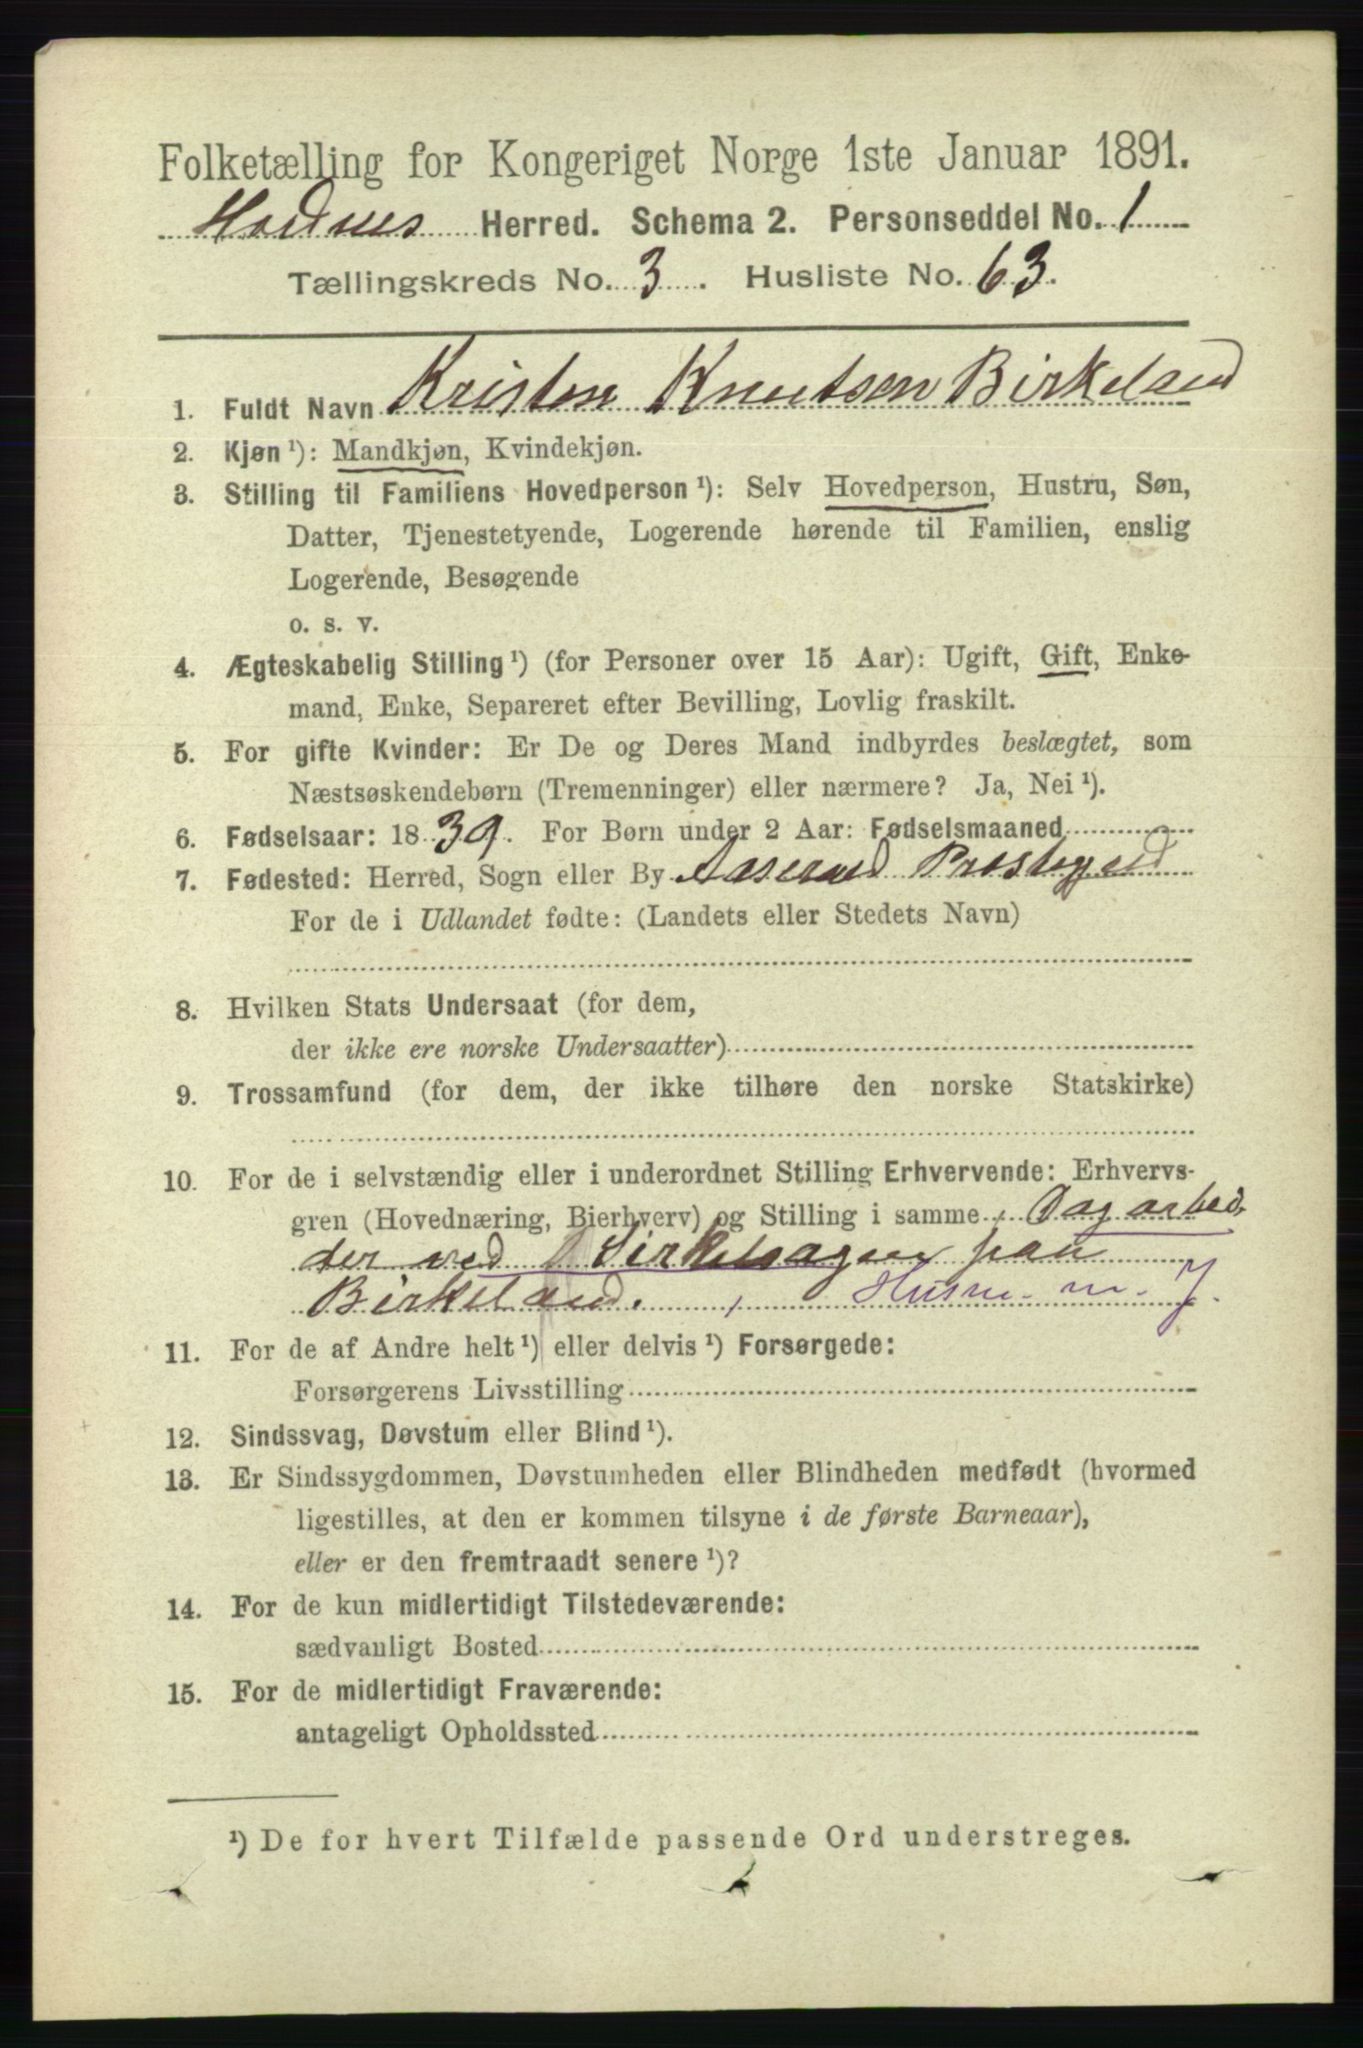 Folketælling for Kongeriget Norge 1ste Januar 1891.
Herred. Schema 2. Personseddel No. 1
Tællingskreds No. 3. Husliste No. 63.
1. Fuldt Navn Kristen Knutsen Birkeland
2. Kjøn ¹): Mandkjøn, Kvindekjøn.
3. Stilling til Familiens Hovedperson ¹): Selv Hovedperson, Hustru, Søn,
Datter, Tjenestetyende, Logerende hørende til Familien, enslig
Logerende, Besøgende
o. s. v.
4. Ægteskabelig Stilling ¹) (for Personer over 15 Aar): Ugift, Gift, Enke-
mand, Enke, Separeret efter Bevilling, Lovlig fraskilt.
5. For gifte Kvinder: Er De og Deres Mand indbyrdes beslægtet, som
Næstsøskendebørn (Tremenninger) eller nærmere? Ja, Nei ¹).
6. Fødselsaar: 1839. For Børn under 2 Aar: Fødselsmaaned
7. Fødested: Herred, Sogn eller By Aaserald Prestegjeld
For de i Udlandet fødte: (Landets eller Stedets Navn)
8. Hvilken Stats Undersaat (for dem,
der ikke ere norske Undersaatter)
9. Trossamfund (for dem, der ikke tilhøre den norske Statskirke)
10. For de i selvstændig eller i underordnet Stilling Erhvervende: Erhvervs-
gren (Hovednæring, Bierhverv) og Stilling i samme Dagarbei
der ved Sirkelsagen paa
Birkeland. Husm. m. J.
11. For de af Andre helt ¹) eller delvis ¹) Forsørgede:
Forsørgerens Livsstilling
12. Sindssvag, Døvstum eller Blind ¹).
13. Er Sindssygdommen, Døvstumheden eller Blindheden medfødt (hvormed
ligestilles, at den er kommen tilsyne i de første Barneaar),
eller er den fremtraadt senere ¹)?
14. For de kun midlertidigt Tilstedeværende:
sædvanligt Bosted
15. For de midlertidigt Fraværende:
antageligt Opholdssted
¹) De for hvert Tilfælde passende Ord understreges.